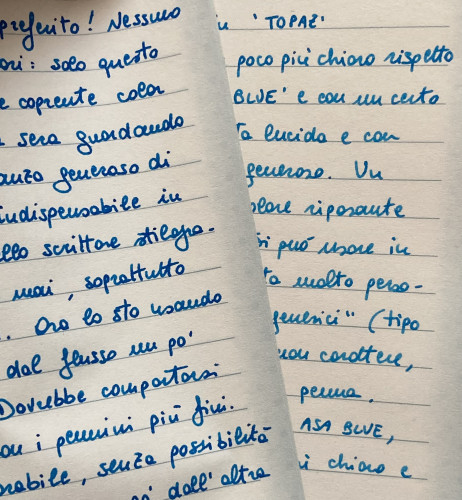 preferito! Nessuno
solo questo
e coprente color
sera guardando
generoso di
indispensabile in
scrittore stilogra-
mai, soprattutto
Ora lo sto usando
dal flusso un po'
Dovrebbe comportarsi
i pennini più fini.
senza possibilità
dall'altra
'TOPAZ'
poco più chiaro rispetto
BLUE' e con un certo
lucida e con
generoso. Un
riposante
può usare in
molto perso-
(tipo
carattere,
penna.
ASA BLUE,
chiaro e